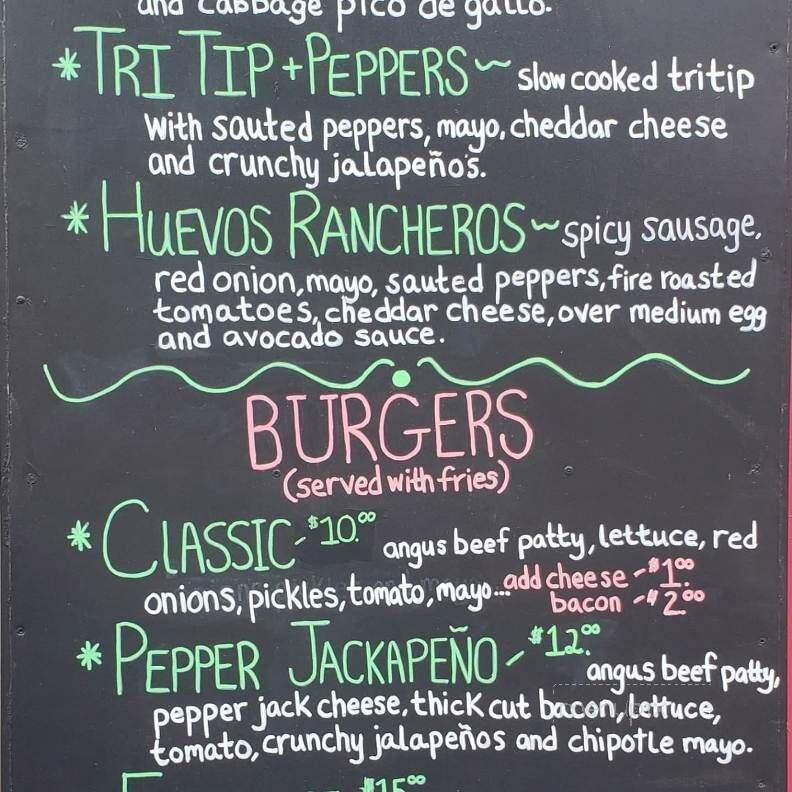 and cabbage pico de gallo.
*TRI TIP + PEPPERS ~ slow cooked tritip
With sauted peppers, mayo, cheddar cheese
and crunchy jalapeños.
*HUEVOS RANCHEROS ~ spicy sausage,
red onion, mayo, sauted peppers, fire roasted
tomatoes, cheddar cheese, over medium egg
and avocado sauce.
BURGERS
(served with fries)
*CLASSIC - $10.00 angus beef patty, lettuce, red
onions, pickles, tomato, mayo... add cheese - $1.00
bacon - $2.00
*PEPPER JACKAPEÑO - $12.00 angus beef patty,
pepper jack cheese, thick cut bacon, lettuce,
tomato, crunchy jalapeños and chipotle mayo.
$15.00